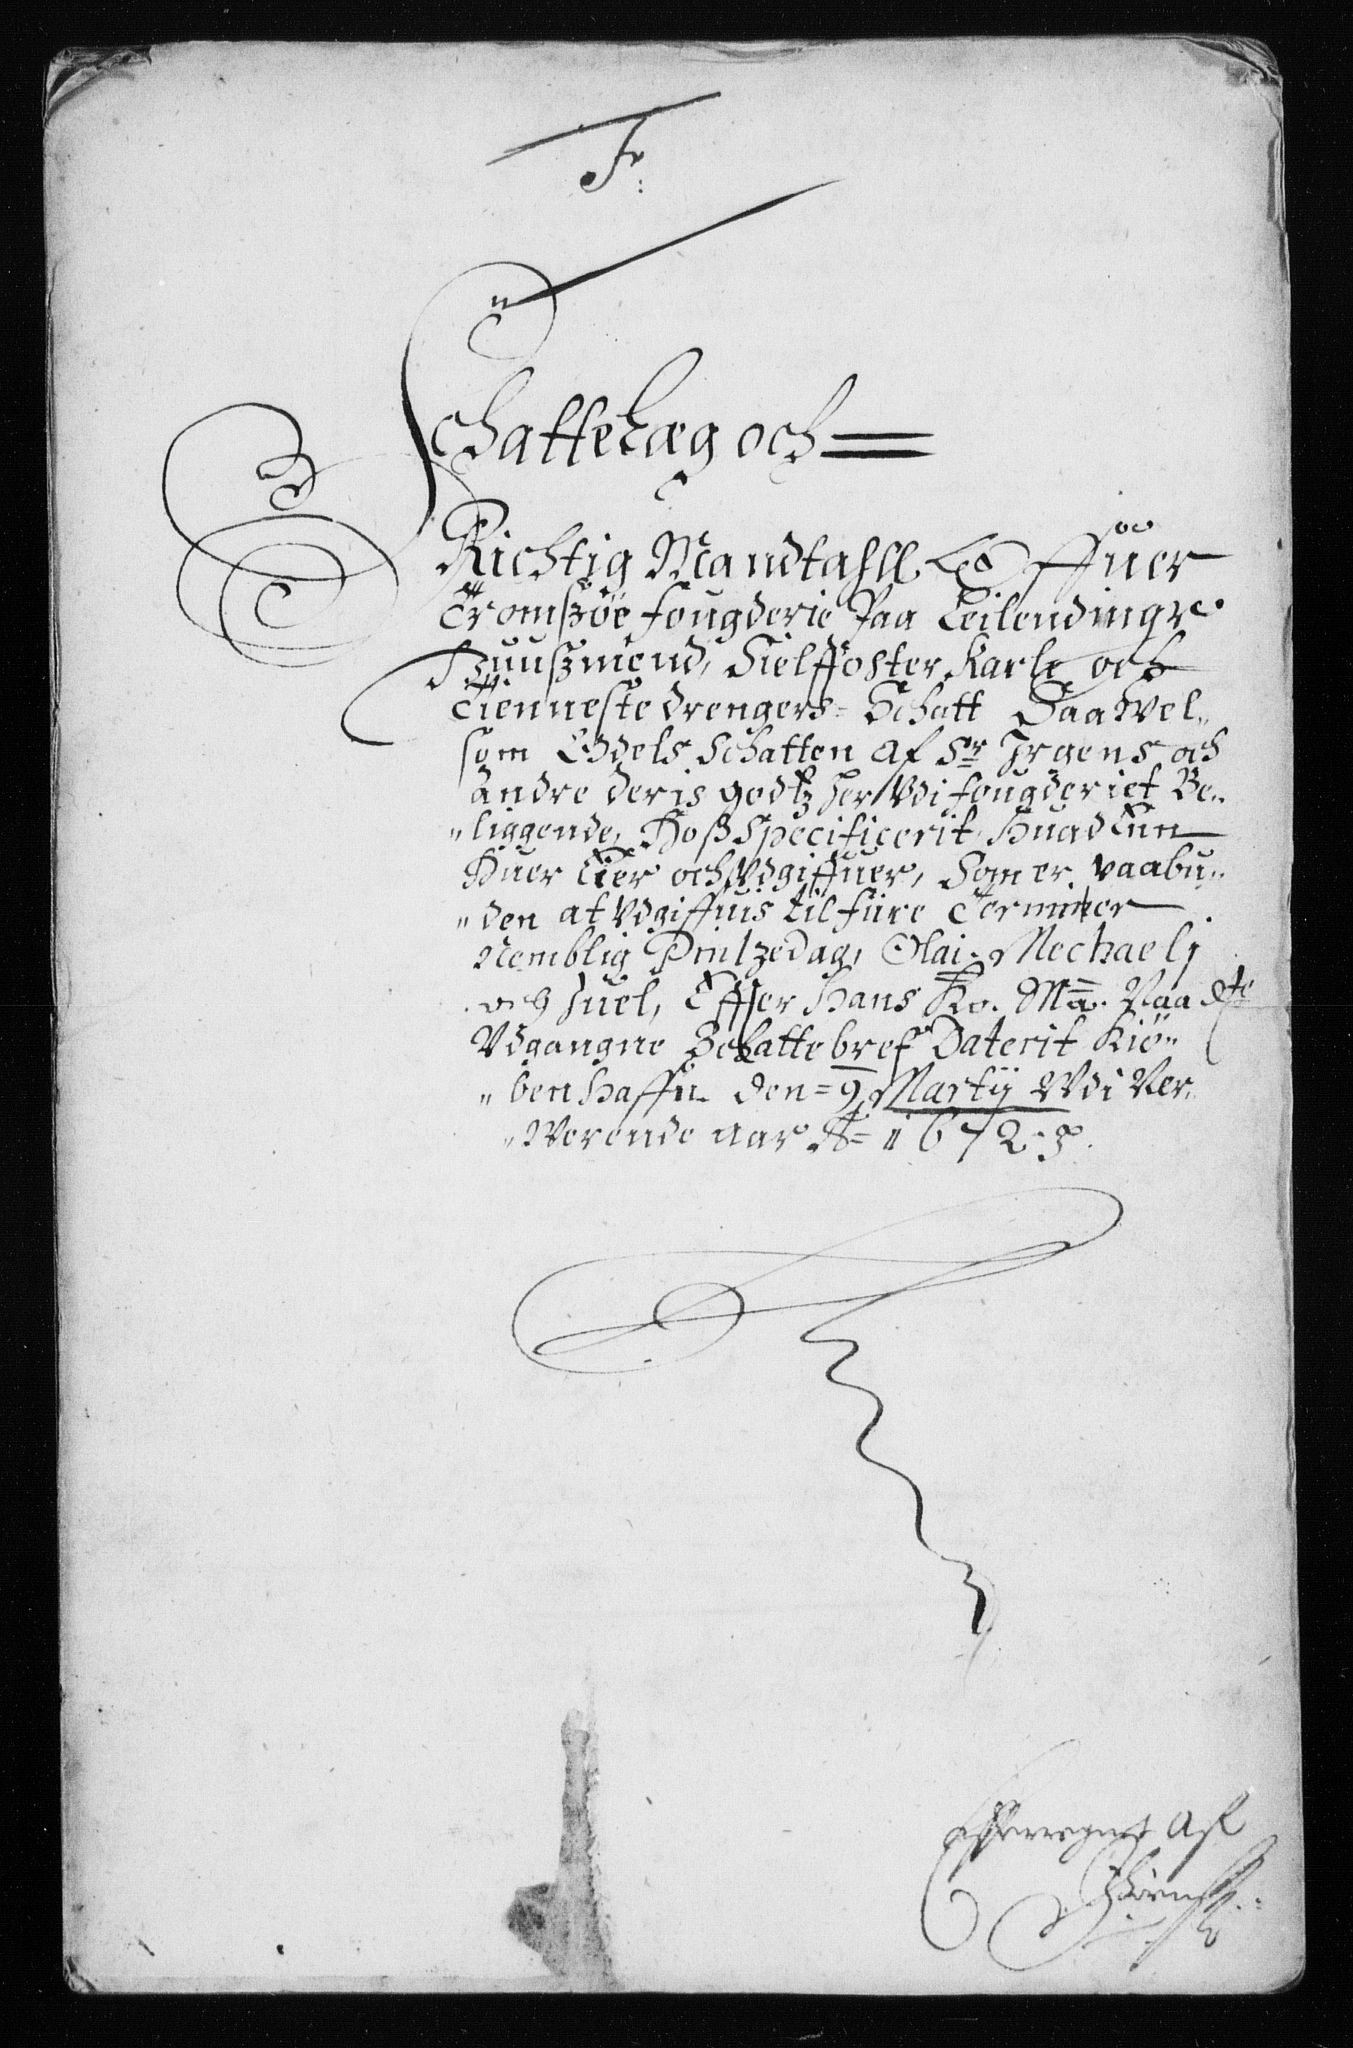 F:
Schattelæg och
Richtig Mandtahll Offuer
Tromszøe fougderie Paa Leilendinge
Huuszmend, Sielffoster Karle och
Tienneste drengers= Schatt Saa Wel„
som Oddels Schatten af Sr Irgens och
andre deris godtz her Vdi fougderiet Be„
„liggende, Hoß Specificerit Huad Enn
Huer Eier och Vdgiffuer, Som er paabu„
„den at Vdgiffuis til fiire Terminer
Nemblig Pintzedag, Olai, Mechaelj
och Juel, Effter Hans Ko. Ma. Naadste
Vdgangne Schatte bref Daterit Kiø„
„ben haffn den = 9 Martij Wdi Ner„
„Werende aar A= 1672.
Efterregnet Af